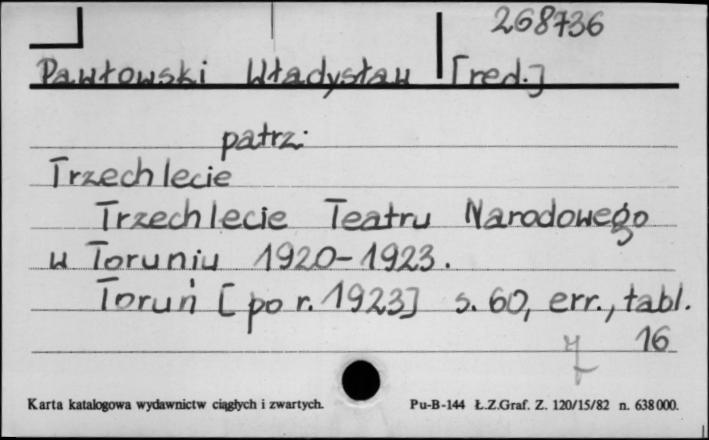 268736
Pawłowski Władysław [red.]
patrz:
Trzechlecie
Trzechlecie Teatru Narodowego
w Toruniu 1920-1923.
Toruń [po r. 1923] s. 60, err., tabl.
16
Karta katalogowa wydawnictw ciągłych i zwartych. Pu-B-144 Ł.Z.Graf. Z. 120/15/82 n. 638000.